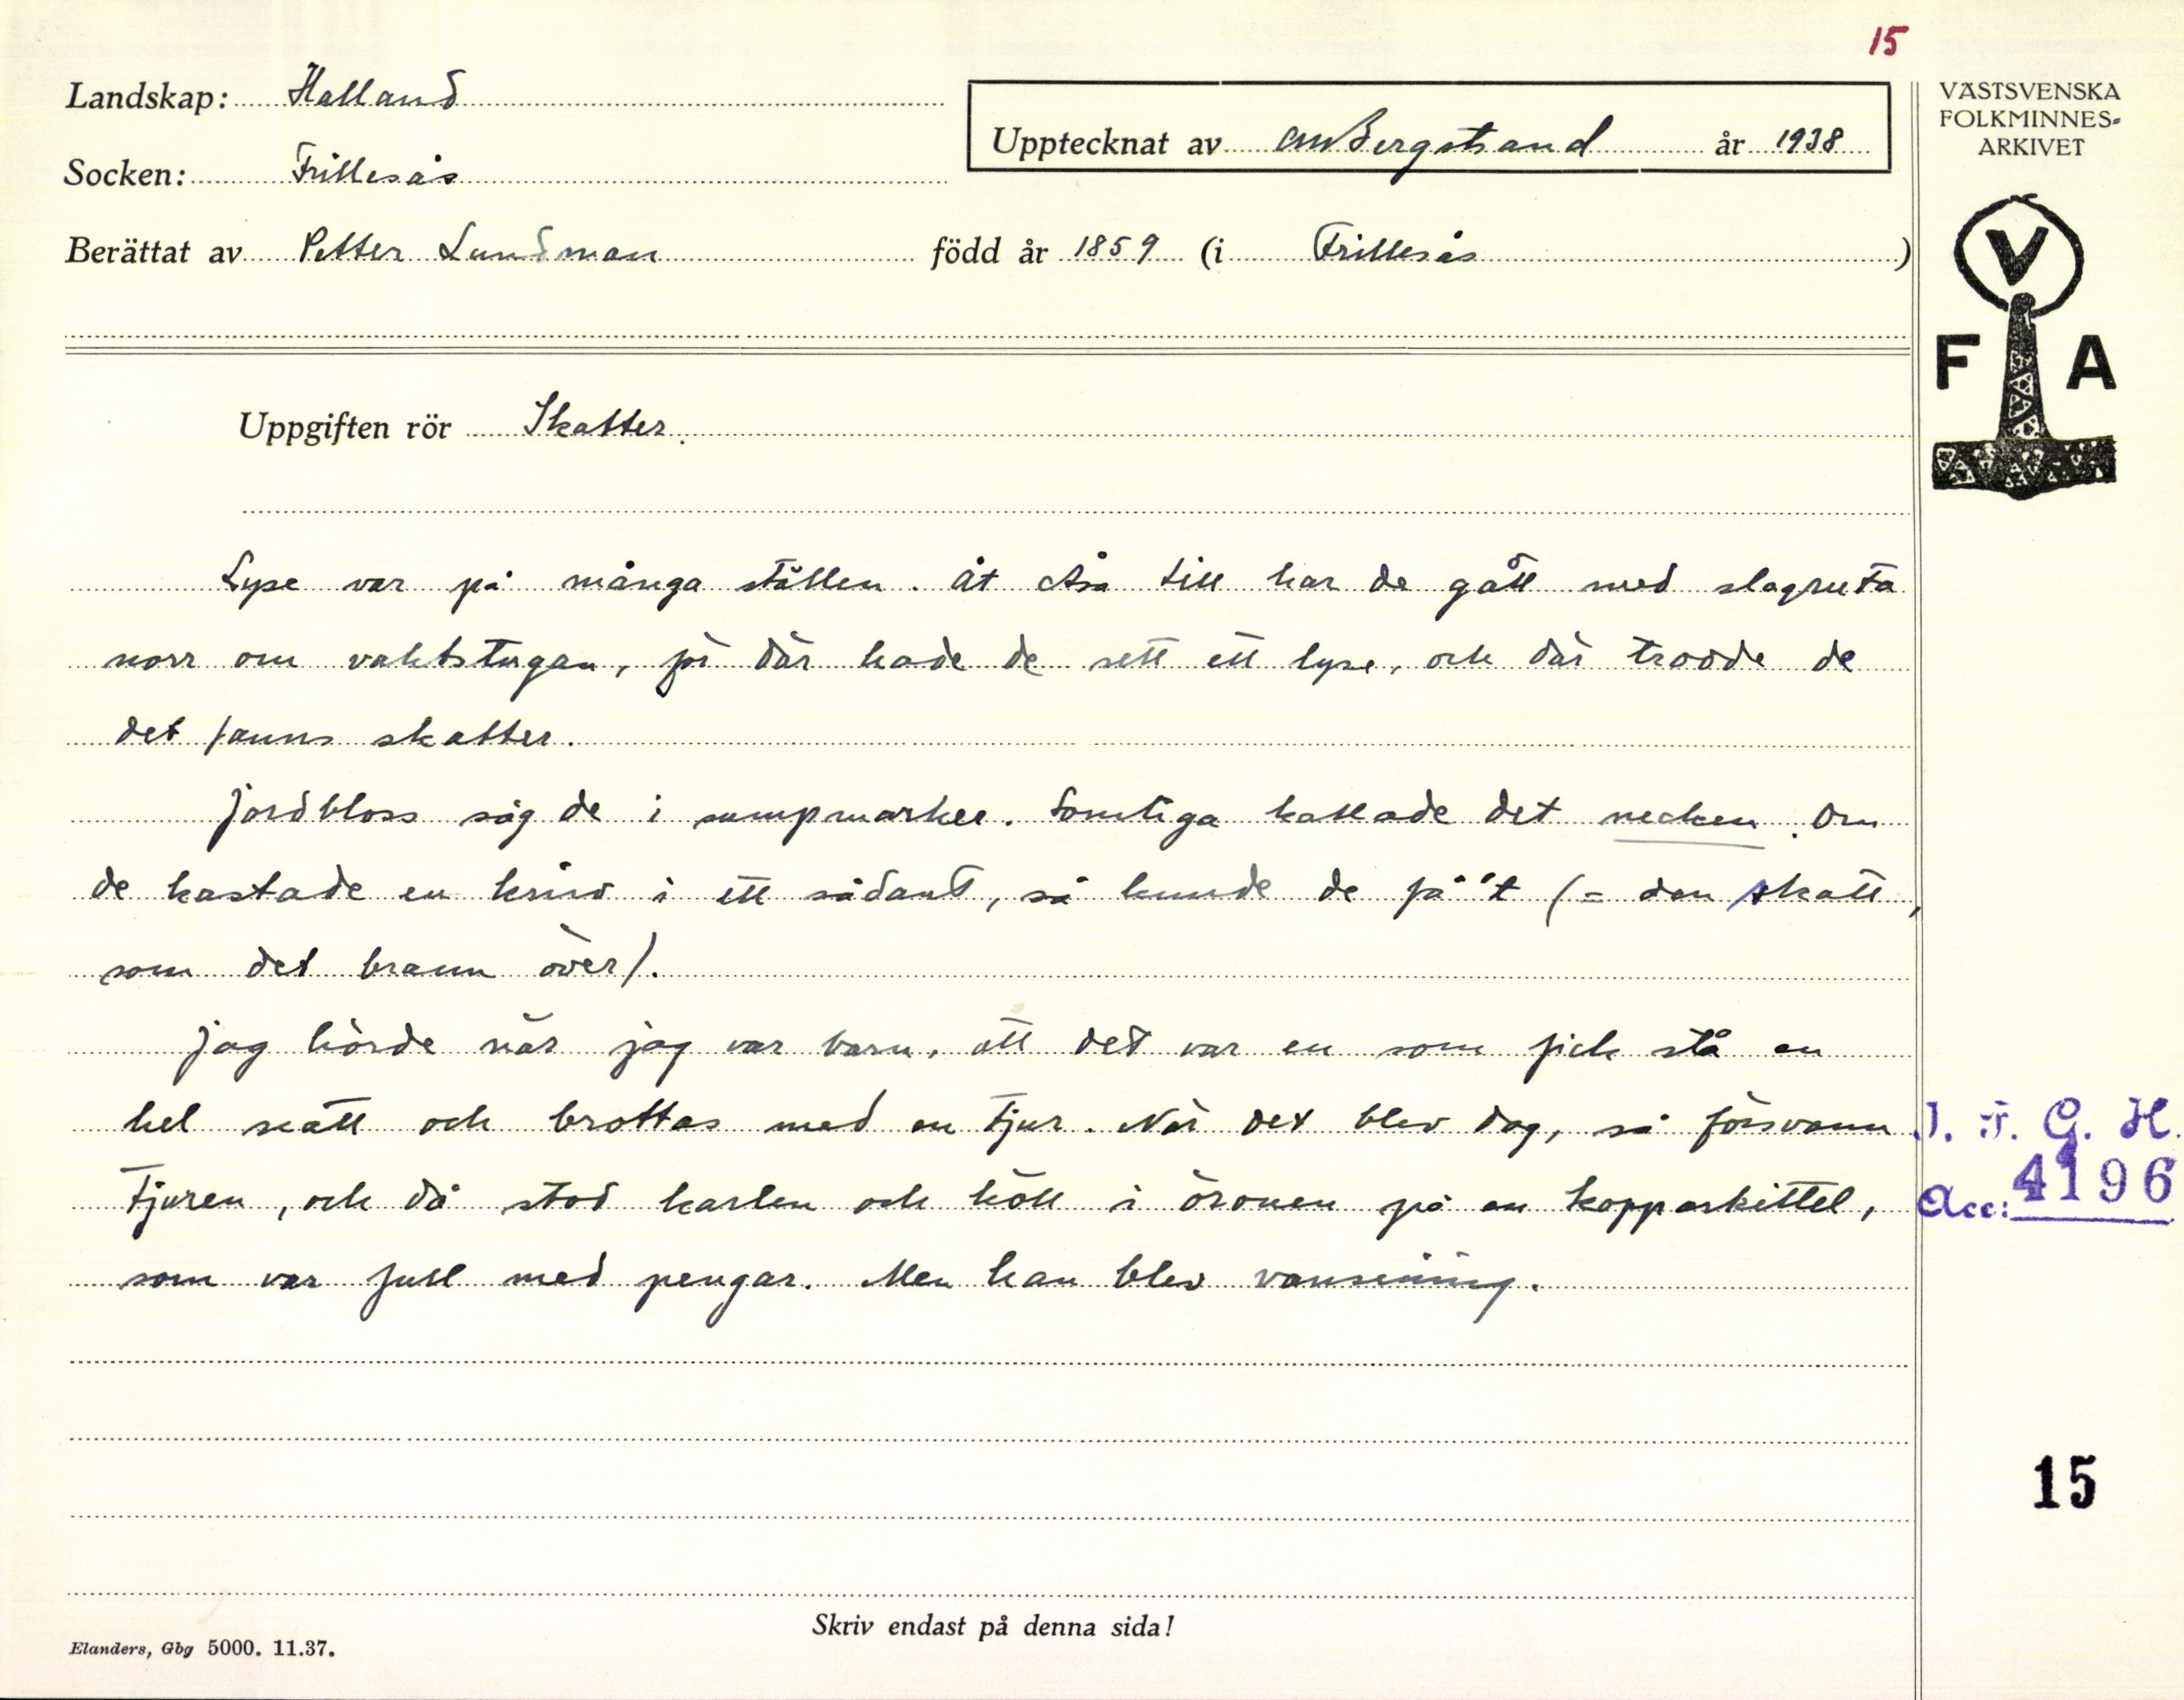 15
Landskap: Halland
Upptecknat av CMBergstrand år 1938
VÄSTSVENSKA
FOLKMINNES-
ARKIVET
Socken: Frillesås
Berättat av Petter Lundman född år 1859 (i Frillesås)
V
F A
Uppgiften rör Skatter.
Lyse var på många ställen. Åt Åsa till har de gått med slagruta
norr om vaktstugan, för där hade de sett ett lyse, och där trodde de
det fanns skatter.
Jordbloss såg de i sumpmarker. Somliga kallade det necken. Om
de kastade en kniv i ett sådant, så kunde de få't (= den skatt,
som det brann över).
Jag hörde när jag var barn, att det var en som fick stå en
hel natt och brottas med en tjur. När det blev dag, så försvann
tjuren, och då stod karlen och höll i öronen på en kopparkittel,
som var full med pengar. Men han blev vansinnig.
I. F. G. H.
Acc: 4196
15
Skriv endast på denna sida!
Elanders, Gbg 5000. 11.37.